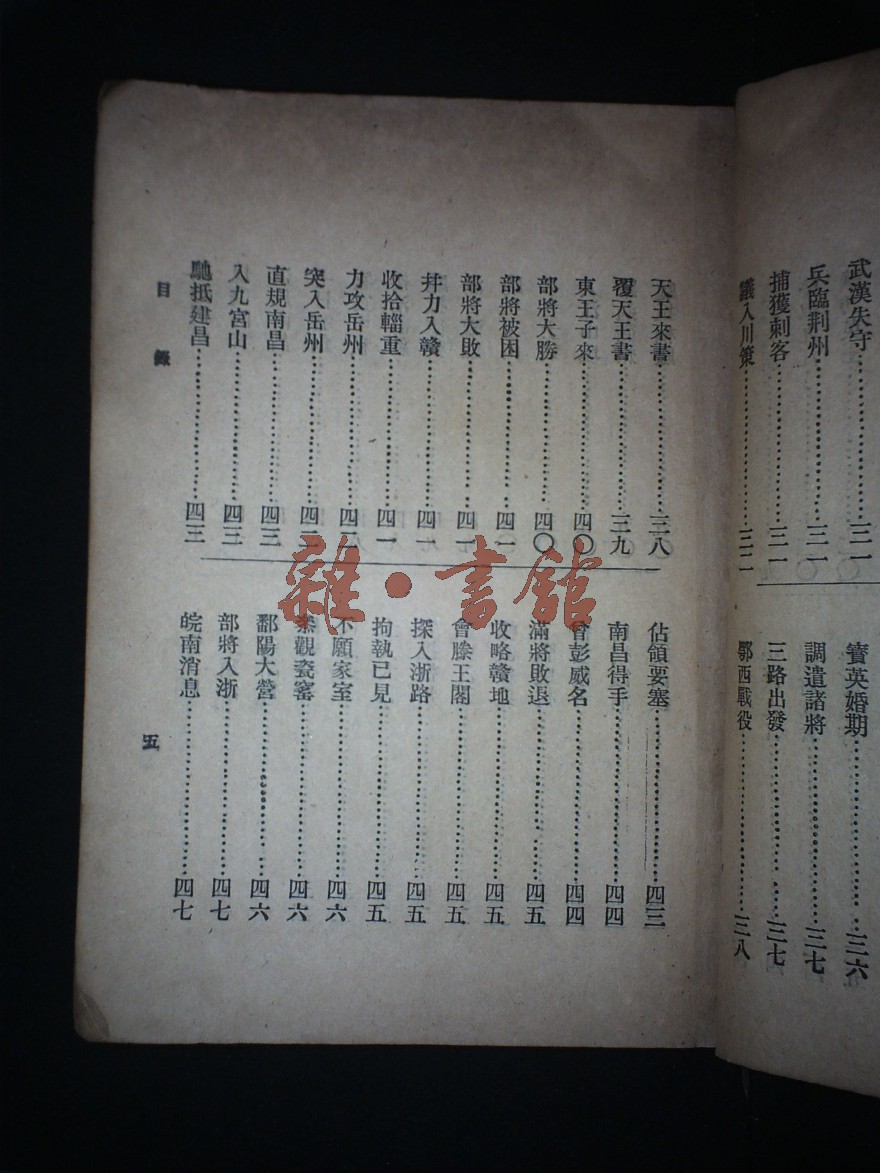 武漢失守……三一
兵臨荆州……三一
捕獲刺客……三一
議入川策……三二
寳英婚期……三六
調遣諸將……三七
三路出發……三七
鄂西戰役……三八
天王來書……三八
覆天王書……三九
東王子來……四〇
部將大勝……四〇
部將被困……四一
部將大敗……四一
幷力入贛……四一
收拾輜重……四一
力攻岳州……四二
突入岳州……四二
直規南昌……四三
入九宮山……四三
馳抵建昌……四三
佔領要塞……四三
南昌得手……四四
曾彭威名……四四
滿將敗退……四五
收略贛地……四五
會滕王閣……四五
探入浙路……四五
拘執已見……四五
不願家室……四六
參觀瓷窰……四六
鄱陽大營……四六
部將入浙……四七
皖南消息……四七
目錄
五
雜·書館